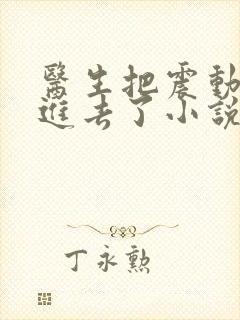 醫生把震動
進去了小說
丁永勲